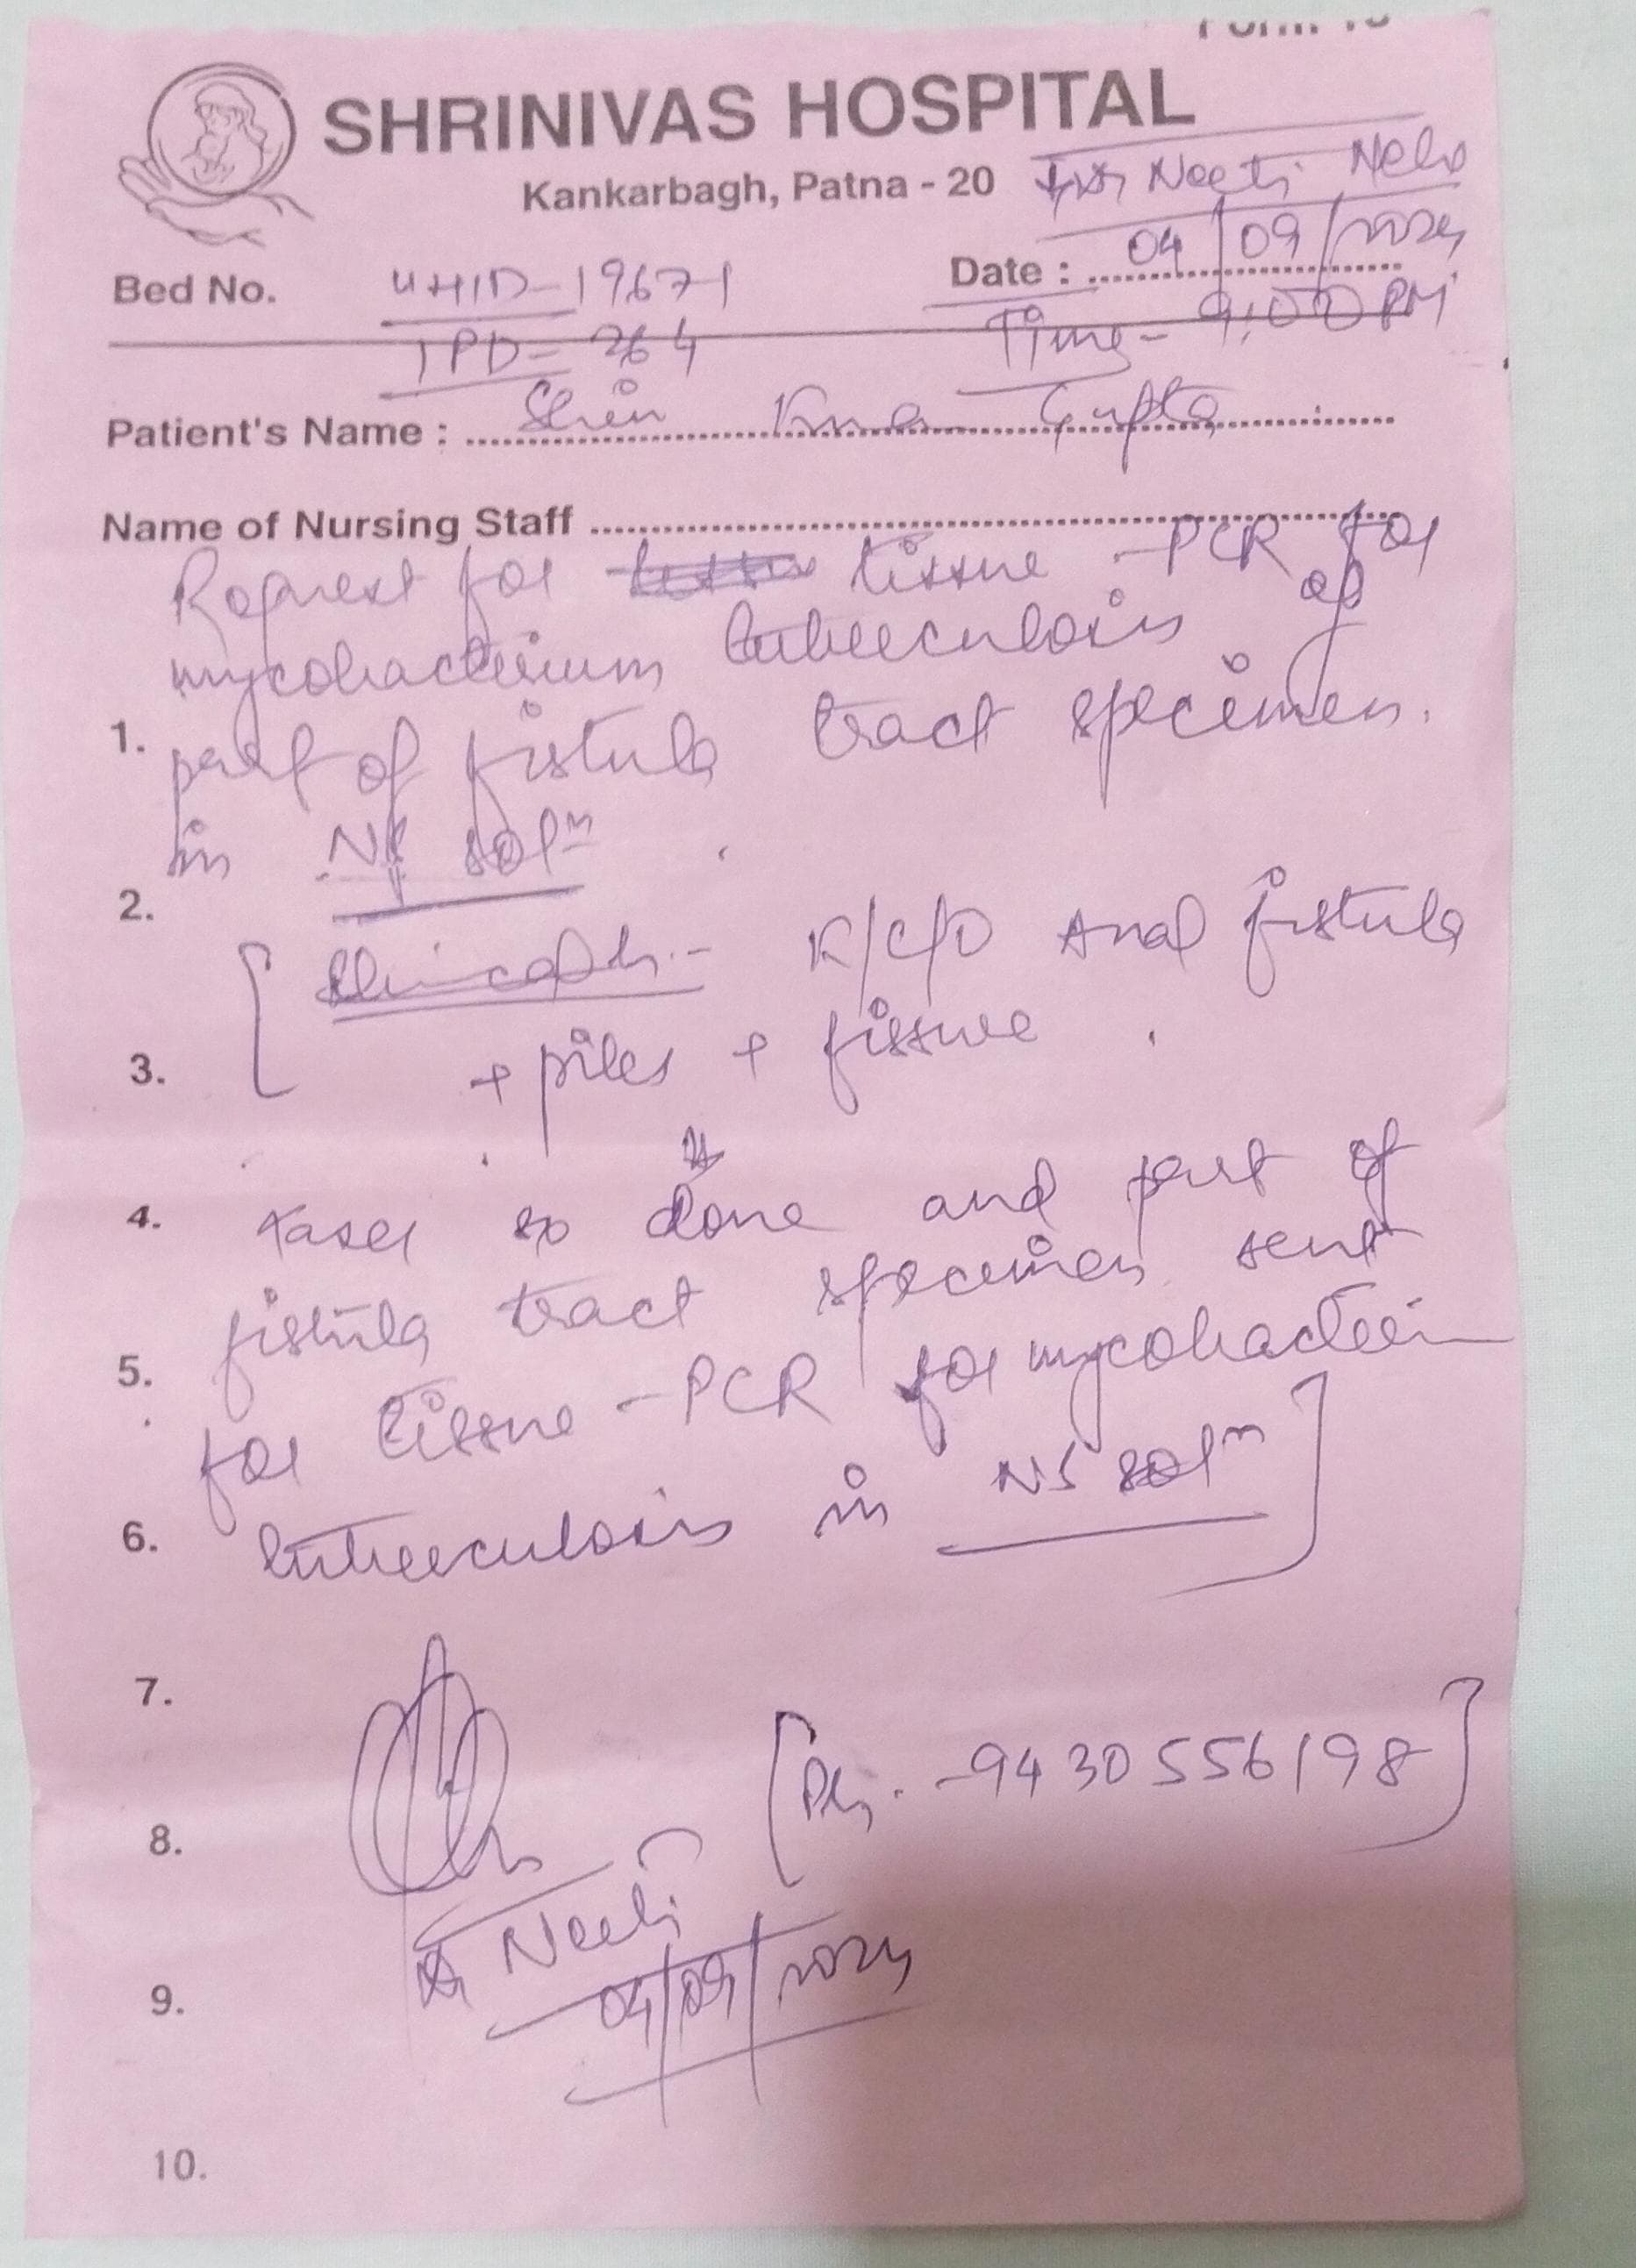 SHRINIVAS HOSPITAL
Kankarbagh, Patna - 20
Neeti Neha
Bed No. UHID-19671
Date : 04/09/2024
IPD- 264
Time- 9:00 PM
Patient's Name : Kumar Gupta
Name of Nursing Staff
Request for tissue -PCR for
mycobacterium tuberculosis of
1. part of fistula tract specimen.
in NS solⁿ
2.
K/C/O Anal fistula
3. + piles + fissure
4. Laser done and part of
fistula tract specimen sent
5. for tissue -PCR for mycobacterium
6. tuberculosis in NS solⁿ
7.
[Ph. -9430556198]
8.
Dr Neeti
9. 04/09/2024
10.